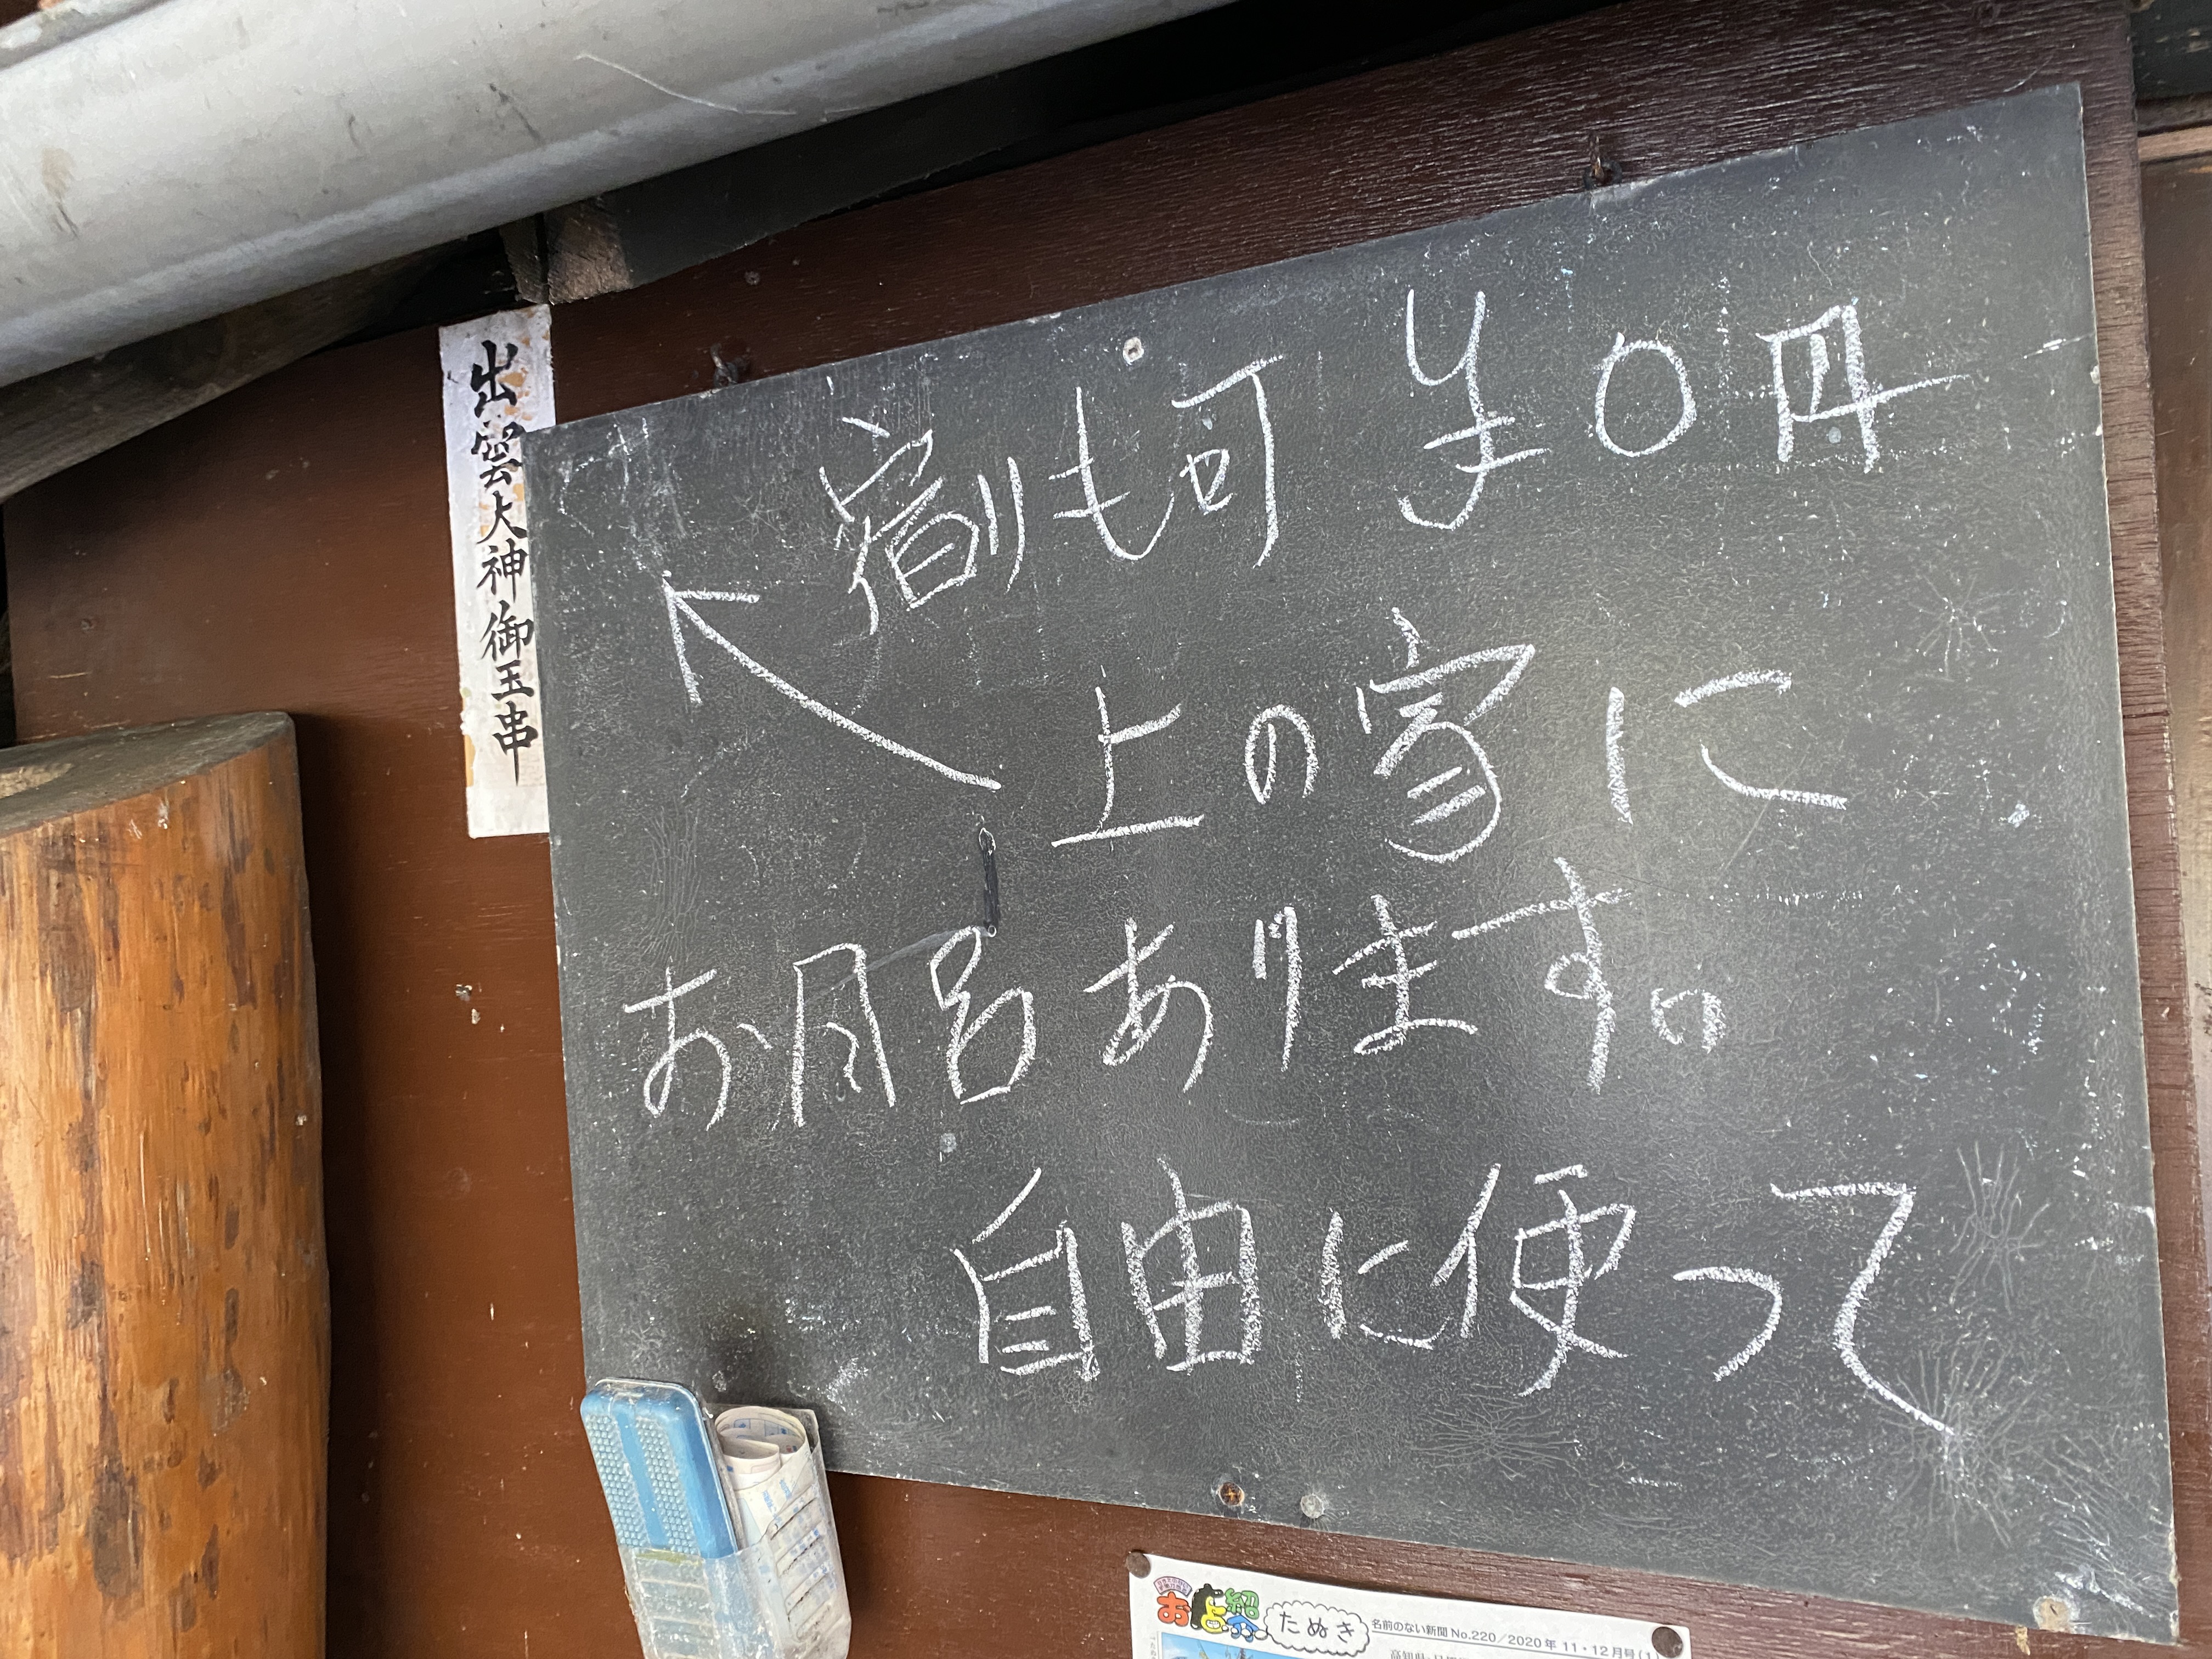 出雲大神御玉串
宿りも可 ¥0円
上の家に
お風呂あります。
自由に使って
お店紹介
たぬき
名前のない新聞 No.220/2020年 11・12月号(1)